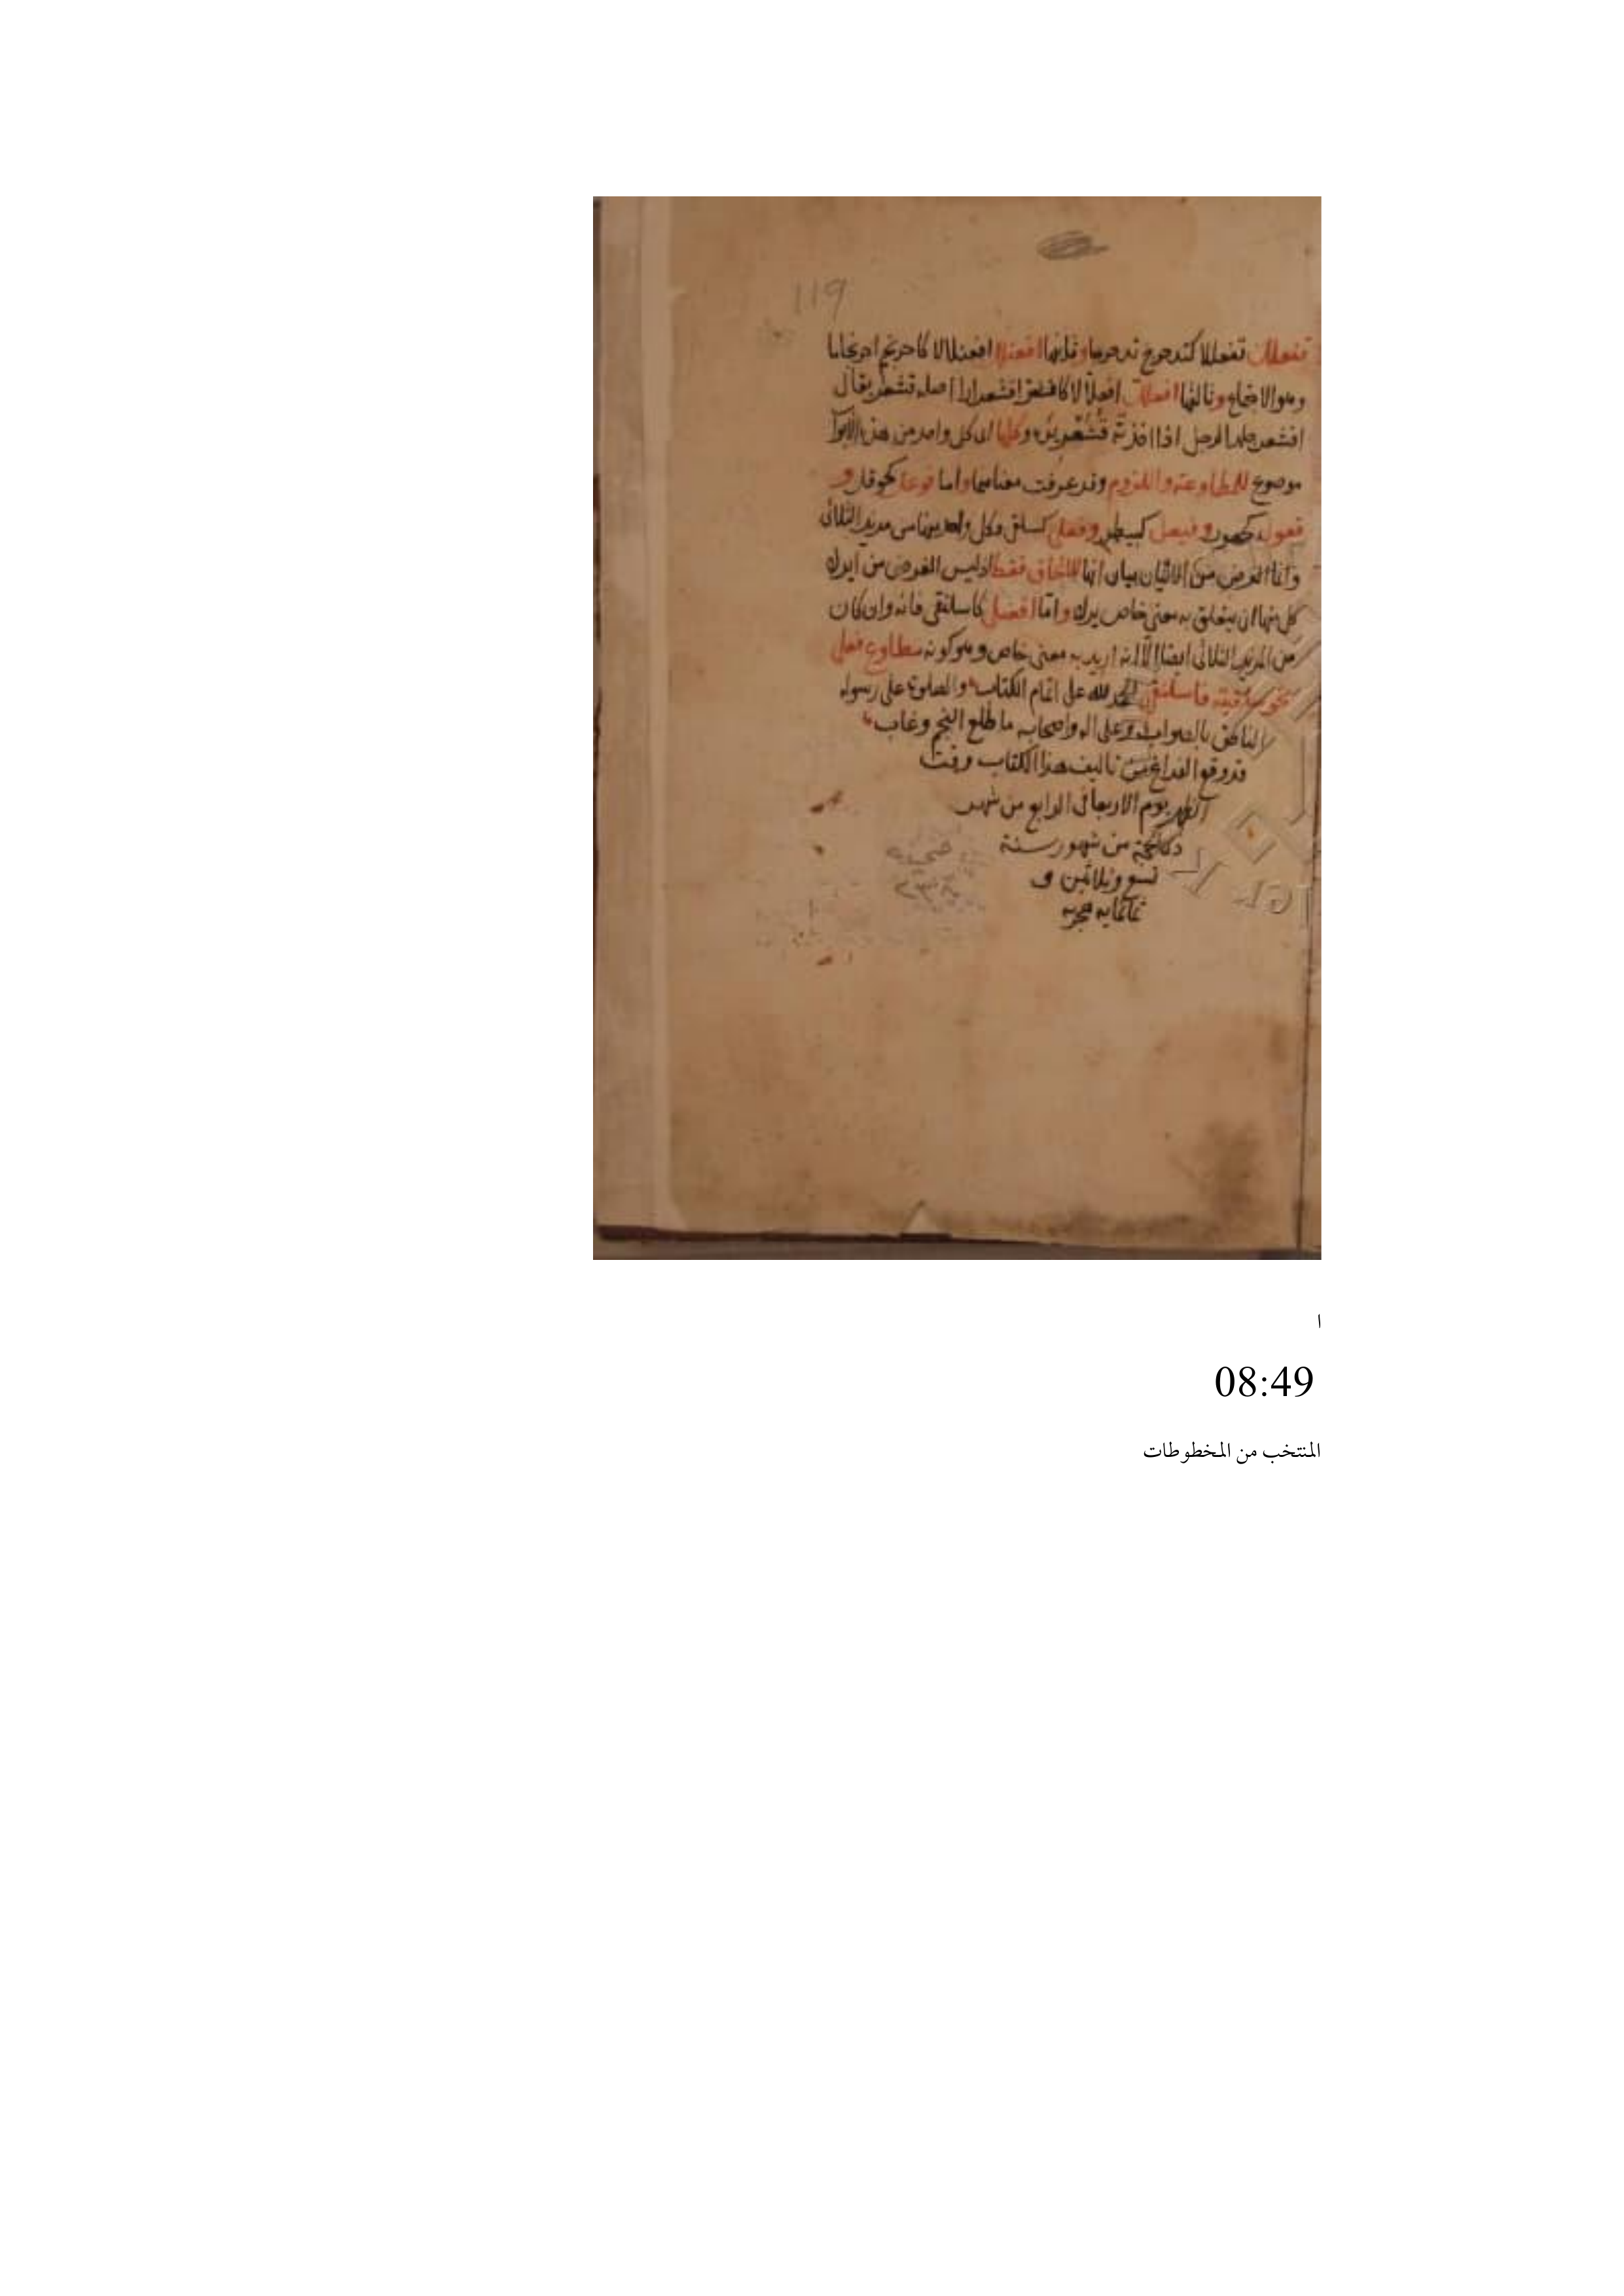 119
تفعلل تفعللا كتدحرج تدحرجا وثانيها افعنلل افعنلالا كاحرنجم احرنجاما
وهو الاجتماع وثالثها افعلل افعلالا كاقشعر اقشعرارا اصله قشعر يقال
اقشعر جلد الرجل اذا اخذته قشعريرة وكلها اى كل واحد من هذه الأبوا
موضوع للمطاوعة واللزوم وقد عرفت معناهما واما فوعل كحوقل و
فعول كجهور وفيعل كبيطر وفعلى كسلقى وكل واحد منها من مزيد الثلاثى
وانما الغرض من الاتيان بيان انها للالحاق فقط اذ ليس الغرض من ايراد
كل منها ان يتعلق به معنى خاص يراد واما افعنلى كاسلنقى فانه وان كان
من المزيد الثلاثى ايضا الا انه اريد به معنى خاص وهو كونه مطاوع فعلى
نحو سلقيته فاسلنقى الحمد لله على اتمام الكتاب والصلوة على رسوله
الناطق بالصواب وعلى اله واصحابه ما طلع النجم وغاب
قد وقع الفراغ من تاليف هذا الكتاب وقت
الظهر يوم الاربعا فى الرابع من شهر
ذى الحجة من شهور سنة
تسع وثلاثين و
ثمانمايه هجريه
ا
08:49
المنتخب من المخطوطات